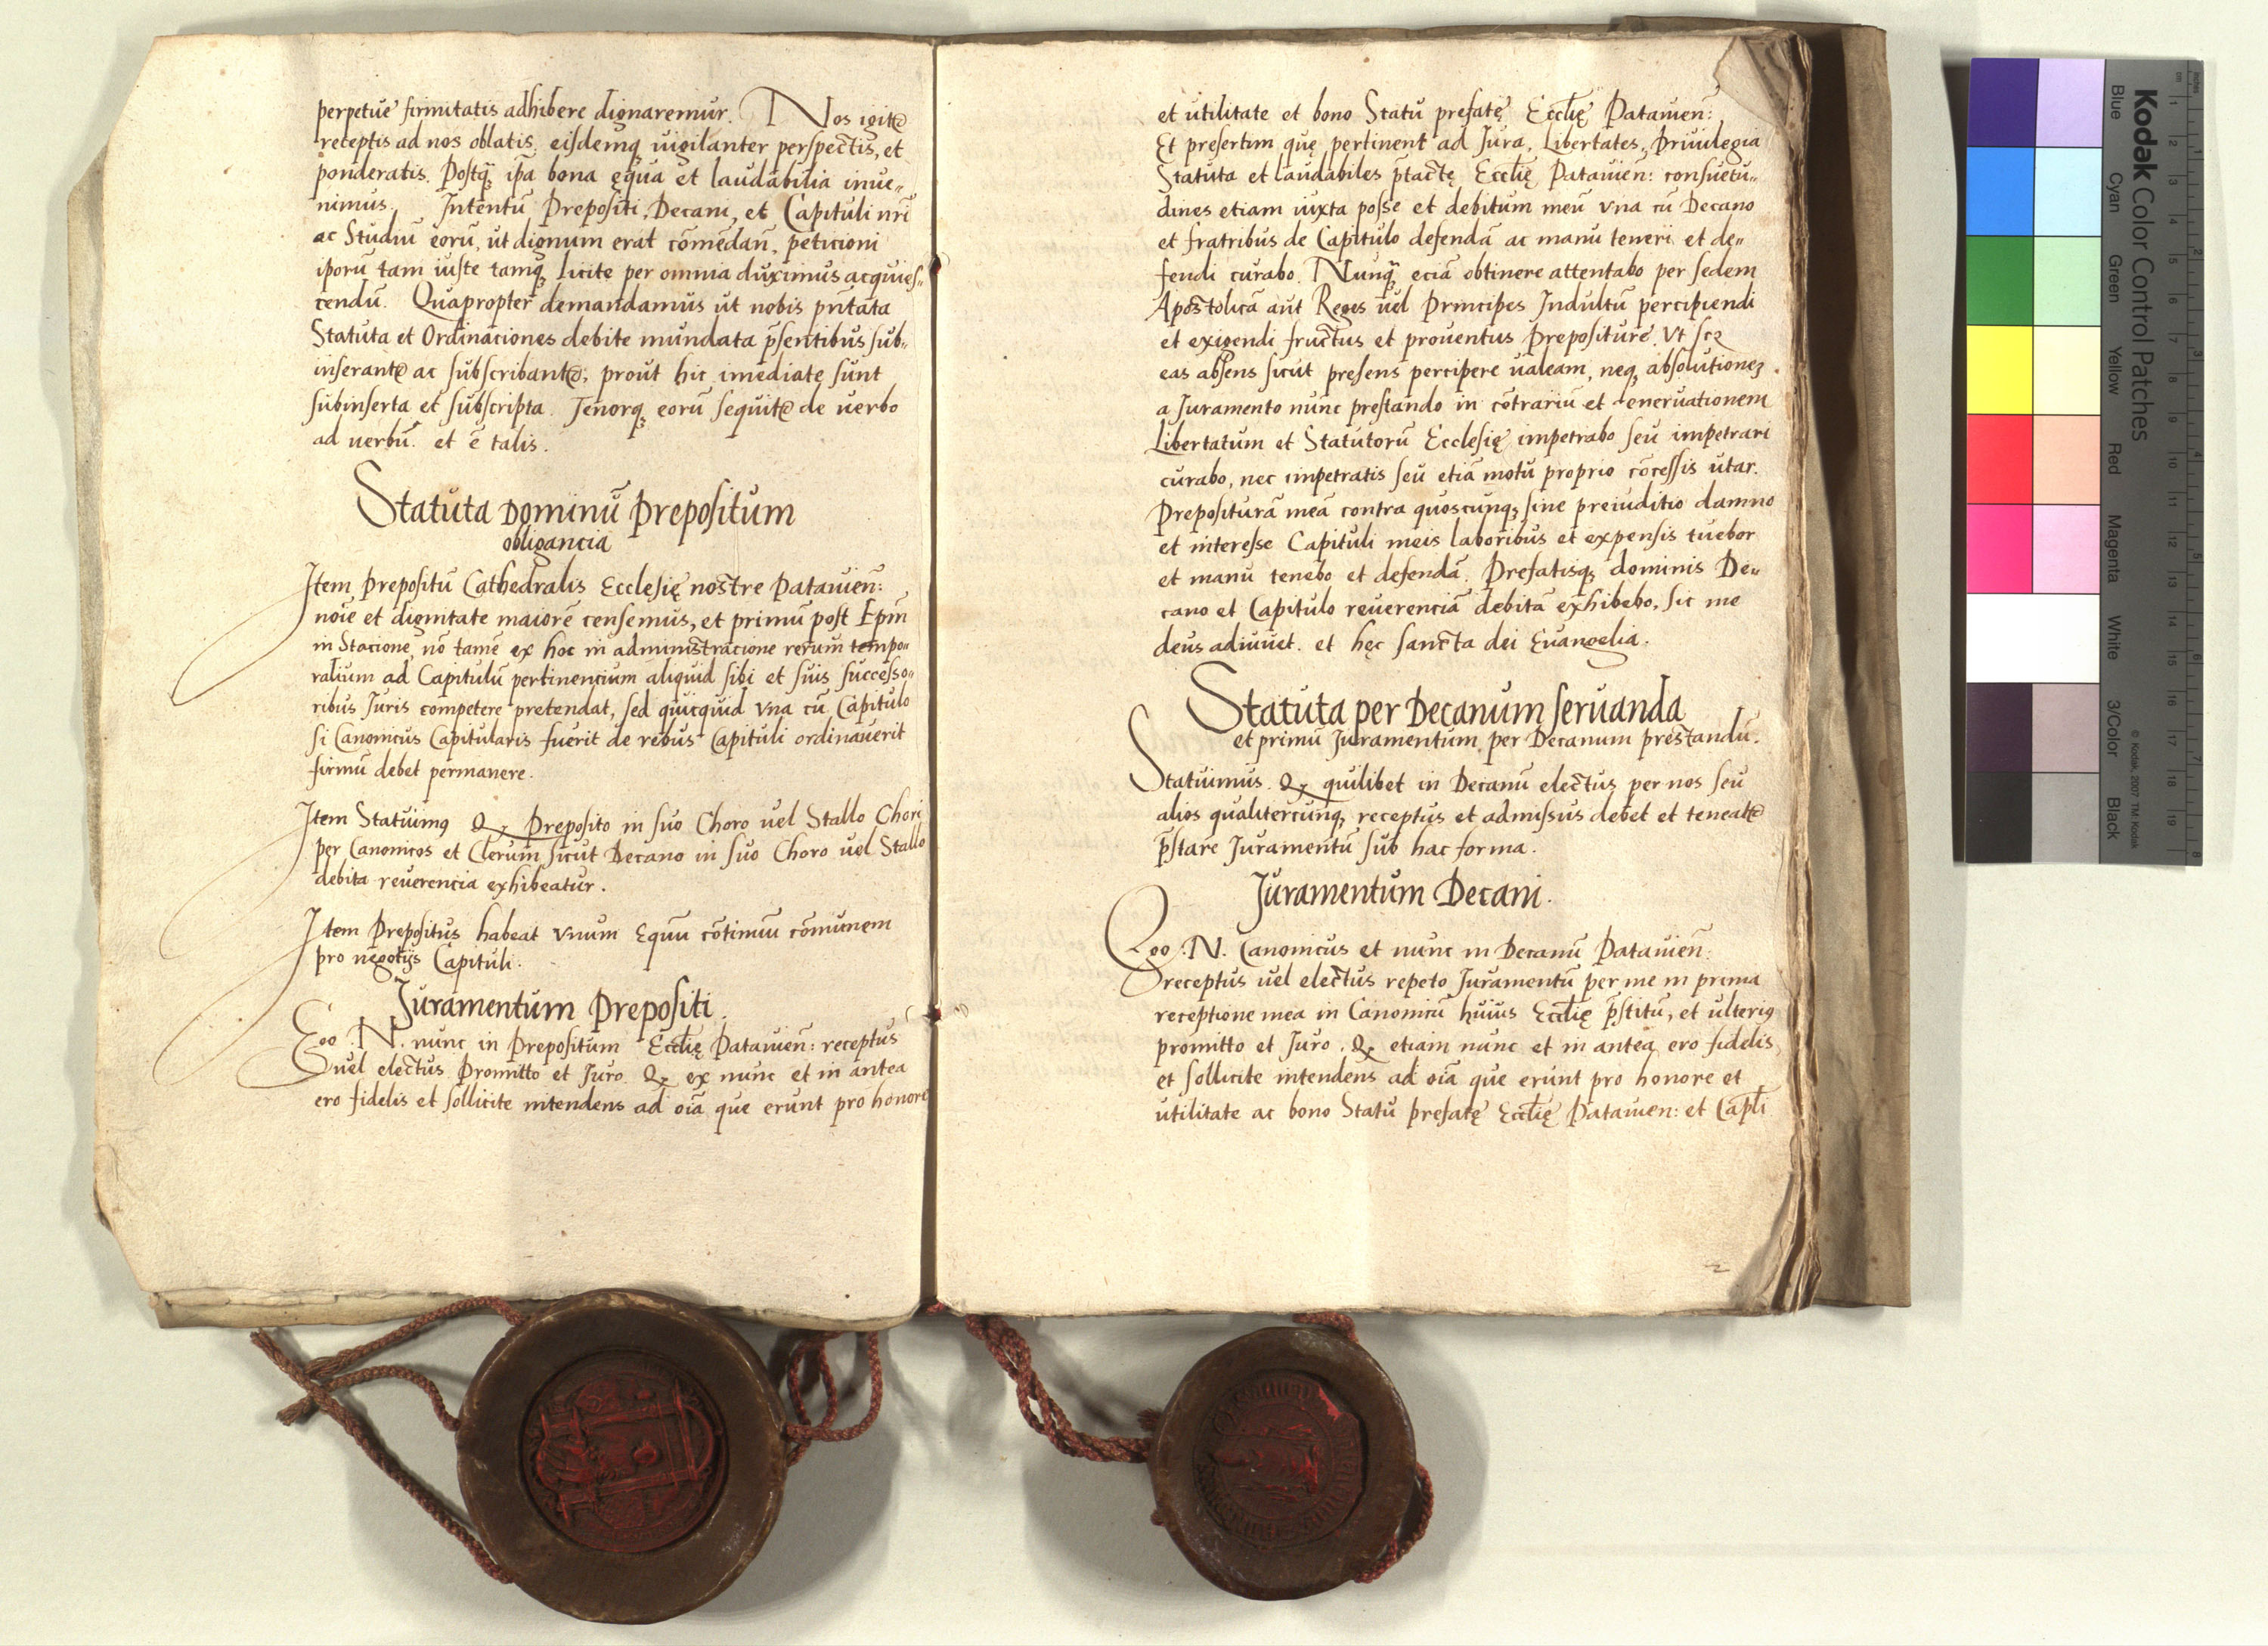 perpetuę firmitatis adhibere dignaremur. Nos igitꝛ
receptis ad nos oblatis, eisdemqꝫ uigilanter perspectis, et
ponderatis. Postqꝫ ip̄a bona ęqua et laudabilia inue„
nimus. Intentū Prepositi, Decani, et Capituli nr̄i
ac Studiū eorū, ut dignum erat cōmēdan̄, peticioni
ip̄orū tam iuste tamqꝫ licite per omnia duximus acquies„
cendū. Quapropter demandamus ut nobis pn̄tata
Statuta et Ordinaciones debite mundata p̄sentibus sub„
inserantꝛ ac subscribantꝛ, prout hic imediate sunt
subinserta et subscripta. Tenorqꝫ eorū sequitꝛ de uerbo
ad uerbū. et ē talis.
Statuta Dominū Prepositum
obligancia
Item Prepositū Cathedralis Ecclesię nostre Patauien̄:
noīe et dignitate maiorē censemus, et primū post Ep̄m
in Stacione, nō tamē ex hoc in administracione rerum tempo„
ralium ad Capitulū pertinencium aliquid sibi et suis successo„
ribus Juris competere pretendat, sed quicquid vna cū Capitulo
si Canonicus Capitularis fuerit de rebus Capituli ordinauerit
firmū debet permanere.
Item Statuimꝰ Qꝫ Preposito in suo Choro uel Stallo Chori
per Canonicos et Clerum sicut Decano in suo Choro uel Stallo
debita reuerencia exhibeatur.
Item Prepositus habeat vnum Equū cōtinuū cōmunem
pro negotijs Capituli.
Juramentum Prepositi.
Ego .N. nunc in Prepositum Eccl̄ię Patauien̄: receptus
uel electus Promitto et Juro. Qꝫ ex nunc et in antea
ero fidelis et sollicite intendens ad oīa que erunt pro honore
et utilitate et bono Statū prefatę Eccl̄ię Patauien̄:
Et presertim quę pertinent ad Jura, Libertates, Priuilegia
Statuta et laudabiles p̄tactę Eccl̄ię Patauien̄: consuetu„
dines etiam iuxta posse et debitum meū vna cū Decano
et fratribus de Capitulo defendā ac manu teneri et de„
fendi curabo. Nunqꝫ eciā obtinere attentabo per sedem
Apostolicā aut Reges uel Principes Indultū percipiendi
et exigendi fructus et prouentus Prepositure, Vt scꝫ
eas absens sicut presens percipere ualeam, neqꝫ absolutionēꝫ
a Juramento nunc prestando in cōtrariū et eneruationem
Libertatum et Statutorū Ecclesię impetrabo seu impetrari
curabo, nec impetratis seu etiā motū proprio cōcessis utar.
Prepositurā meā contra quoscunqꝫ sine preiuditio damno
et interesse Capituli meis laboribus et expensis tuebor
et manu tenebo et defendā. Prefatisqꝫ dominis De„
cano et Capitulo reuerenciā debitā exhibebo, sic me
deus adiuuet. et hęc sancta dei Euangelia.
Statuta per Decanum seruanda
et primū Juramentum per Decanum prestandū.
Statuimus. Qꝫ quilibet in Decanū electus per nos seu
alios qualitercunqꝫ receptus et admissus debet et teneatꝛ
p̄stare Juramentū sub hac forma.
Juramentum Decani.
Ego .N. Canonicus et nunc in Decanū Patauien̄:
receptus uel electus repeto Juramentū per me in prima
receptione mea in Canonicū huius Eccl̄ię p̄stitū, et ulteriꝰ
promitto et Juro. Qꝫ etiam nunc et in antea ero fidelis
et sollicite intendens ad oīa que erunt pro honore et
utilitate ac bono Statū prefatę Eccl̄ię Patauien: et Capl̄i
2
Kodak Color Control Patches
Blue Cyan Green Yellow Red Magenta White 3/Color Black
© Kodak, 2007 TM: Kodak
cm 1 2 3 4 5 6 7 8 9 10 11 12 13 14 15 16 17 18 19
inches 1 2 3 4 5 6 7 8